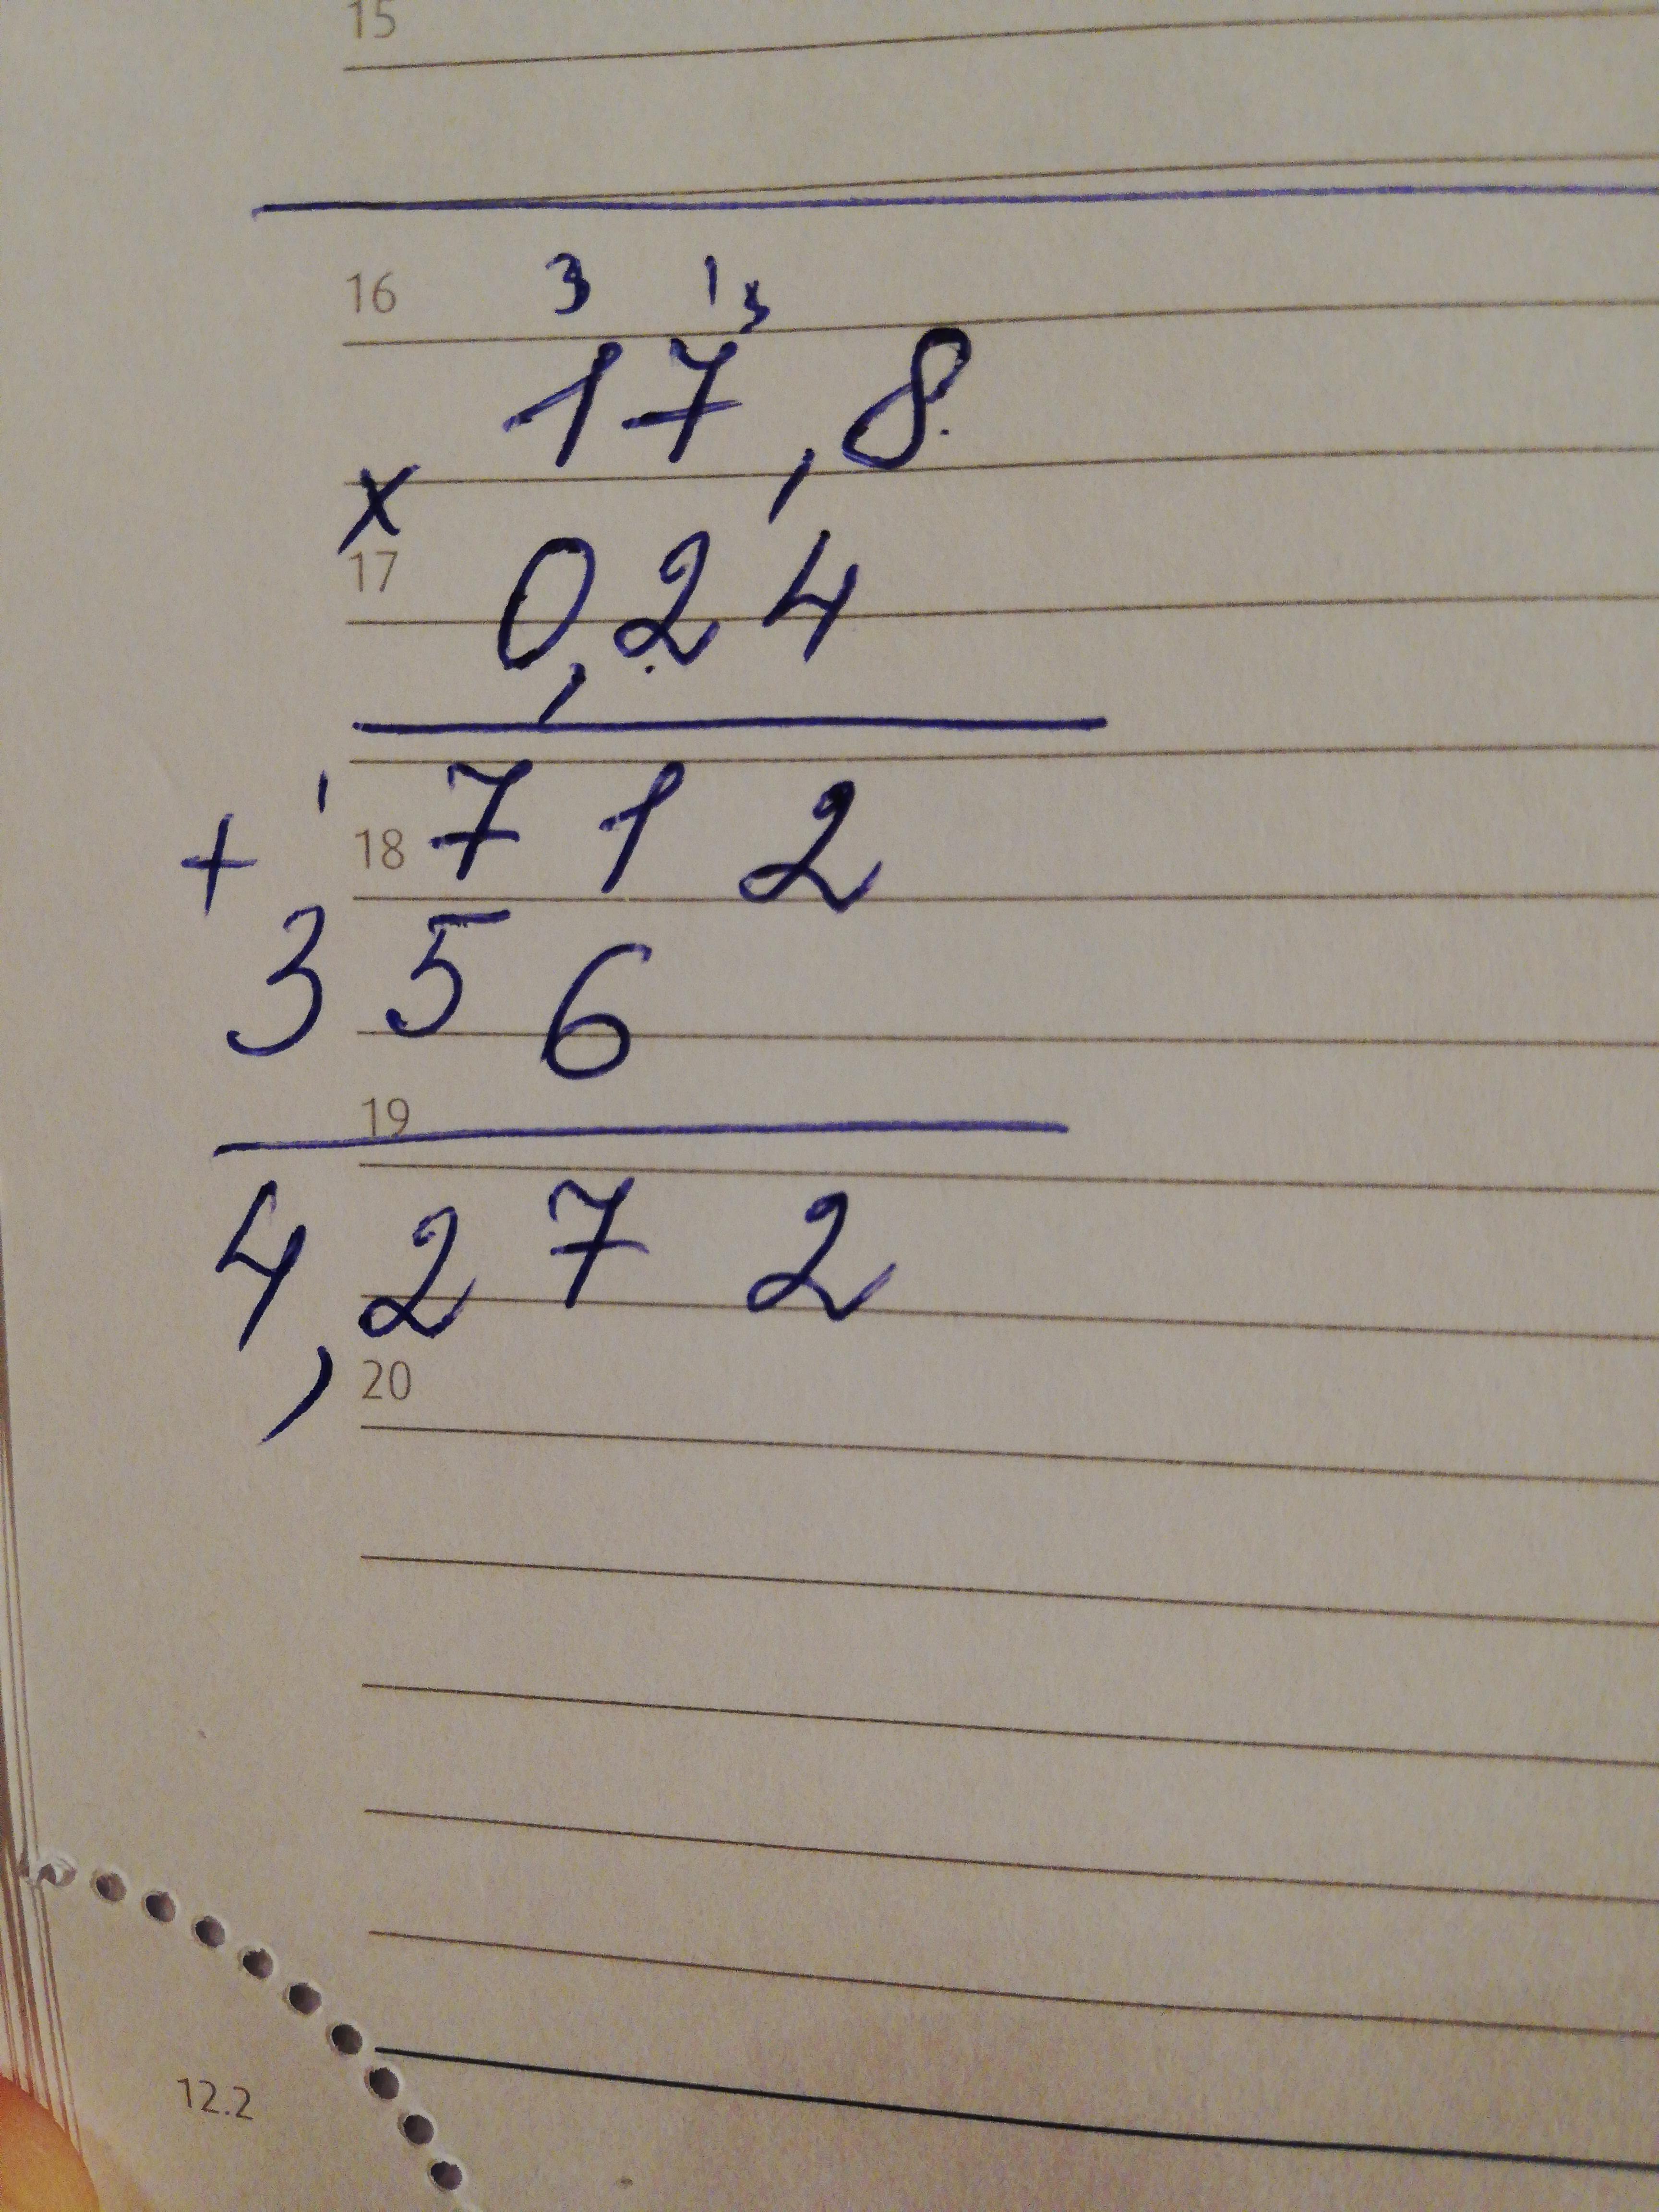 15
16 3 1 3
17,8
x
17 0,24
+ 1 18 7 1 2
3 5 6
19
4,2 7 2
20
12.2